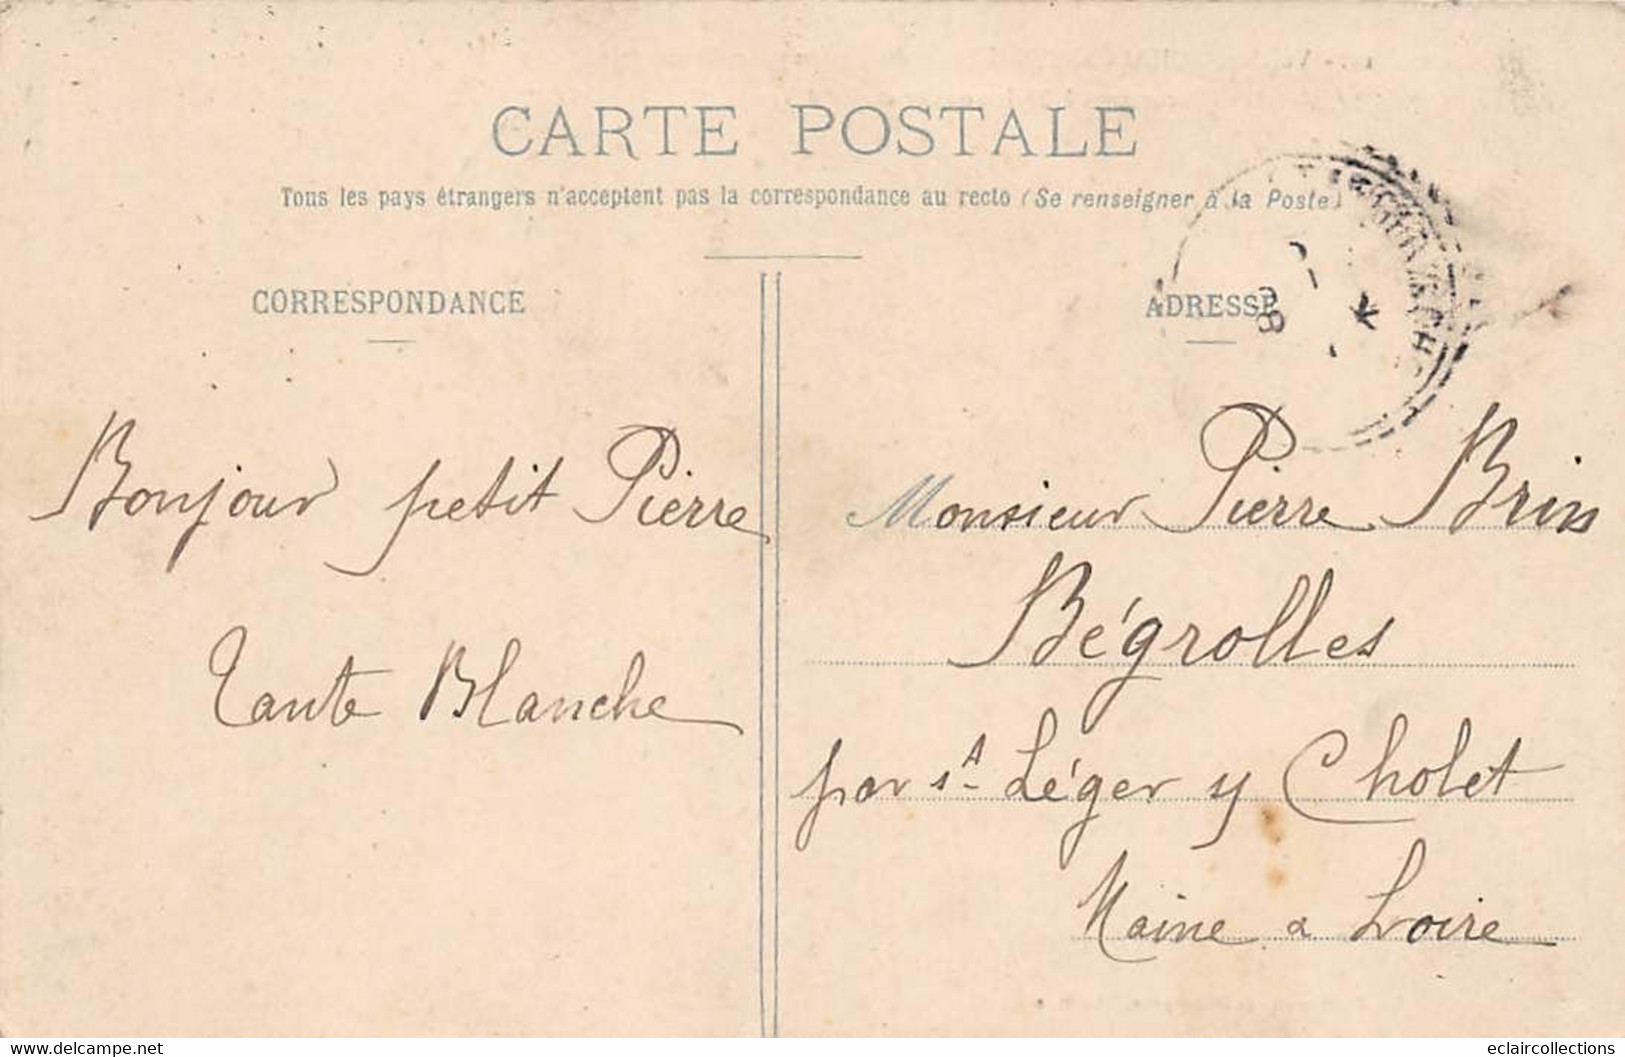 CARTE POSTALE
Tous les pays étrangers n'acceptent pas la correspondance au recto (Se renseigner à la Poste)
CORRESPONDANCE
ADRESSE
Bonjour petit Pierre
Tante Blanche
Monsieur Pierre Brin
Bégrolles
par St Léger y Cholet
Maine & Loire
https://www.delcampe.net
eclaircollections